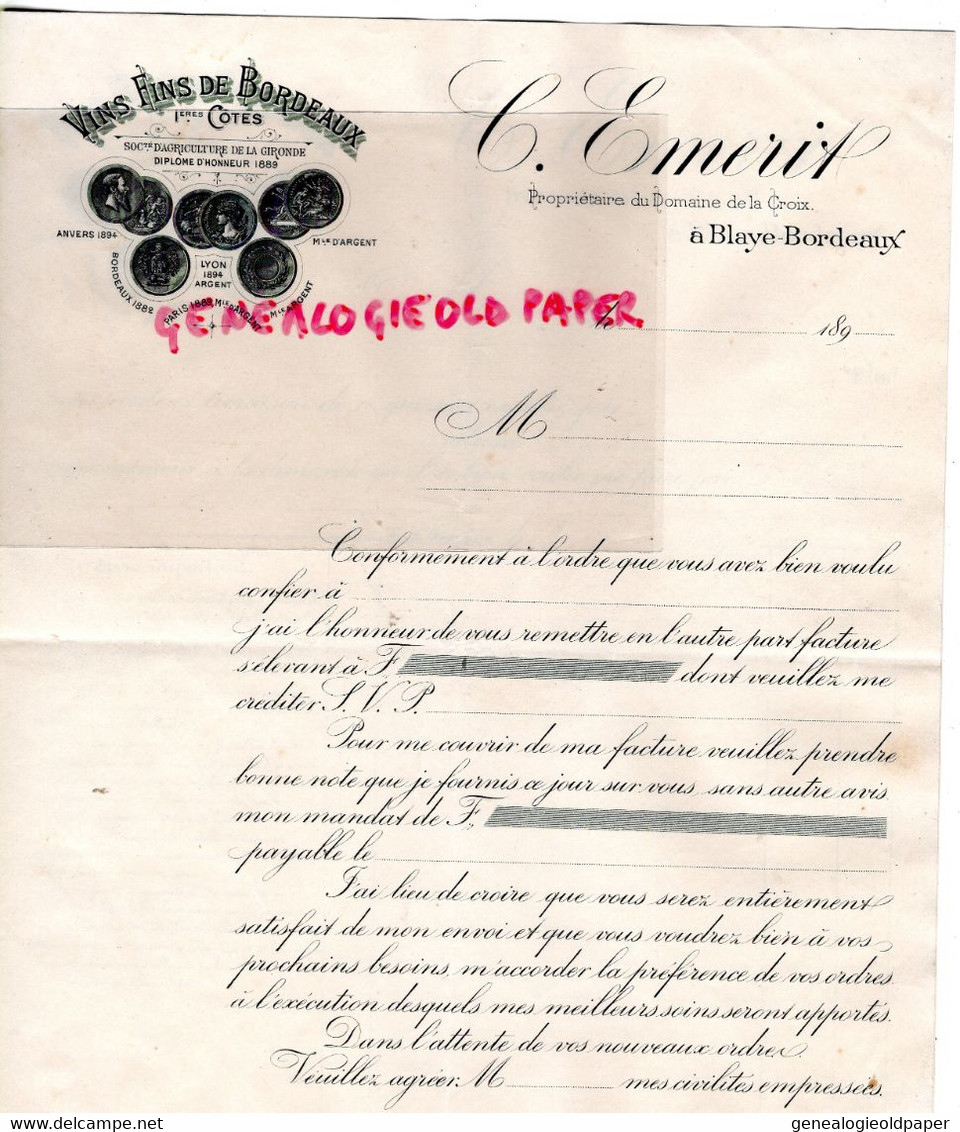 VINS FINS DE BORDEAUX
1ERES COTES
SOCTÉ D'AGRICULTURE DE LA GIRONDE
DIPLOME D'HONNEUR 1889
ANVERS 1894
MLE D'ARGENT
BORDEAUX 1882
LYON
1894
ARGENT
PARIS 1889, MLE D'ARGENT
MLE ARGENT
C. Emerit
Propriétaire du Domaine de la Croix.
à Blaye-Bordeaux
GENEALOGIE OLD PAPER
le 189
M
Conformément à l'ordre que vous avez bien voulu
confier à
j'ai l'honneur de vous remettre en l'autre part facture
s'élevant à F. dont veuillez me
créditer S. V. P.
Pour me couvrir de ma facture veuillez prendre
bonne note que je fournis ce jour sur vous, sans autre avis
mon mandat de F.
payable le
J'ai lieu de croire que vous serez entièrement
satisfait de mon envoi et que vous voudrez bien à vos
prochains besoins, m'accorder la préférence de vos ordres
à l'exécution desquels mes meilleurs soins seront apportés.
Dans l'attente de vos nouveaux ordres.
Veuillez agréer M mes civilités empressées.
genealogieoldpaper